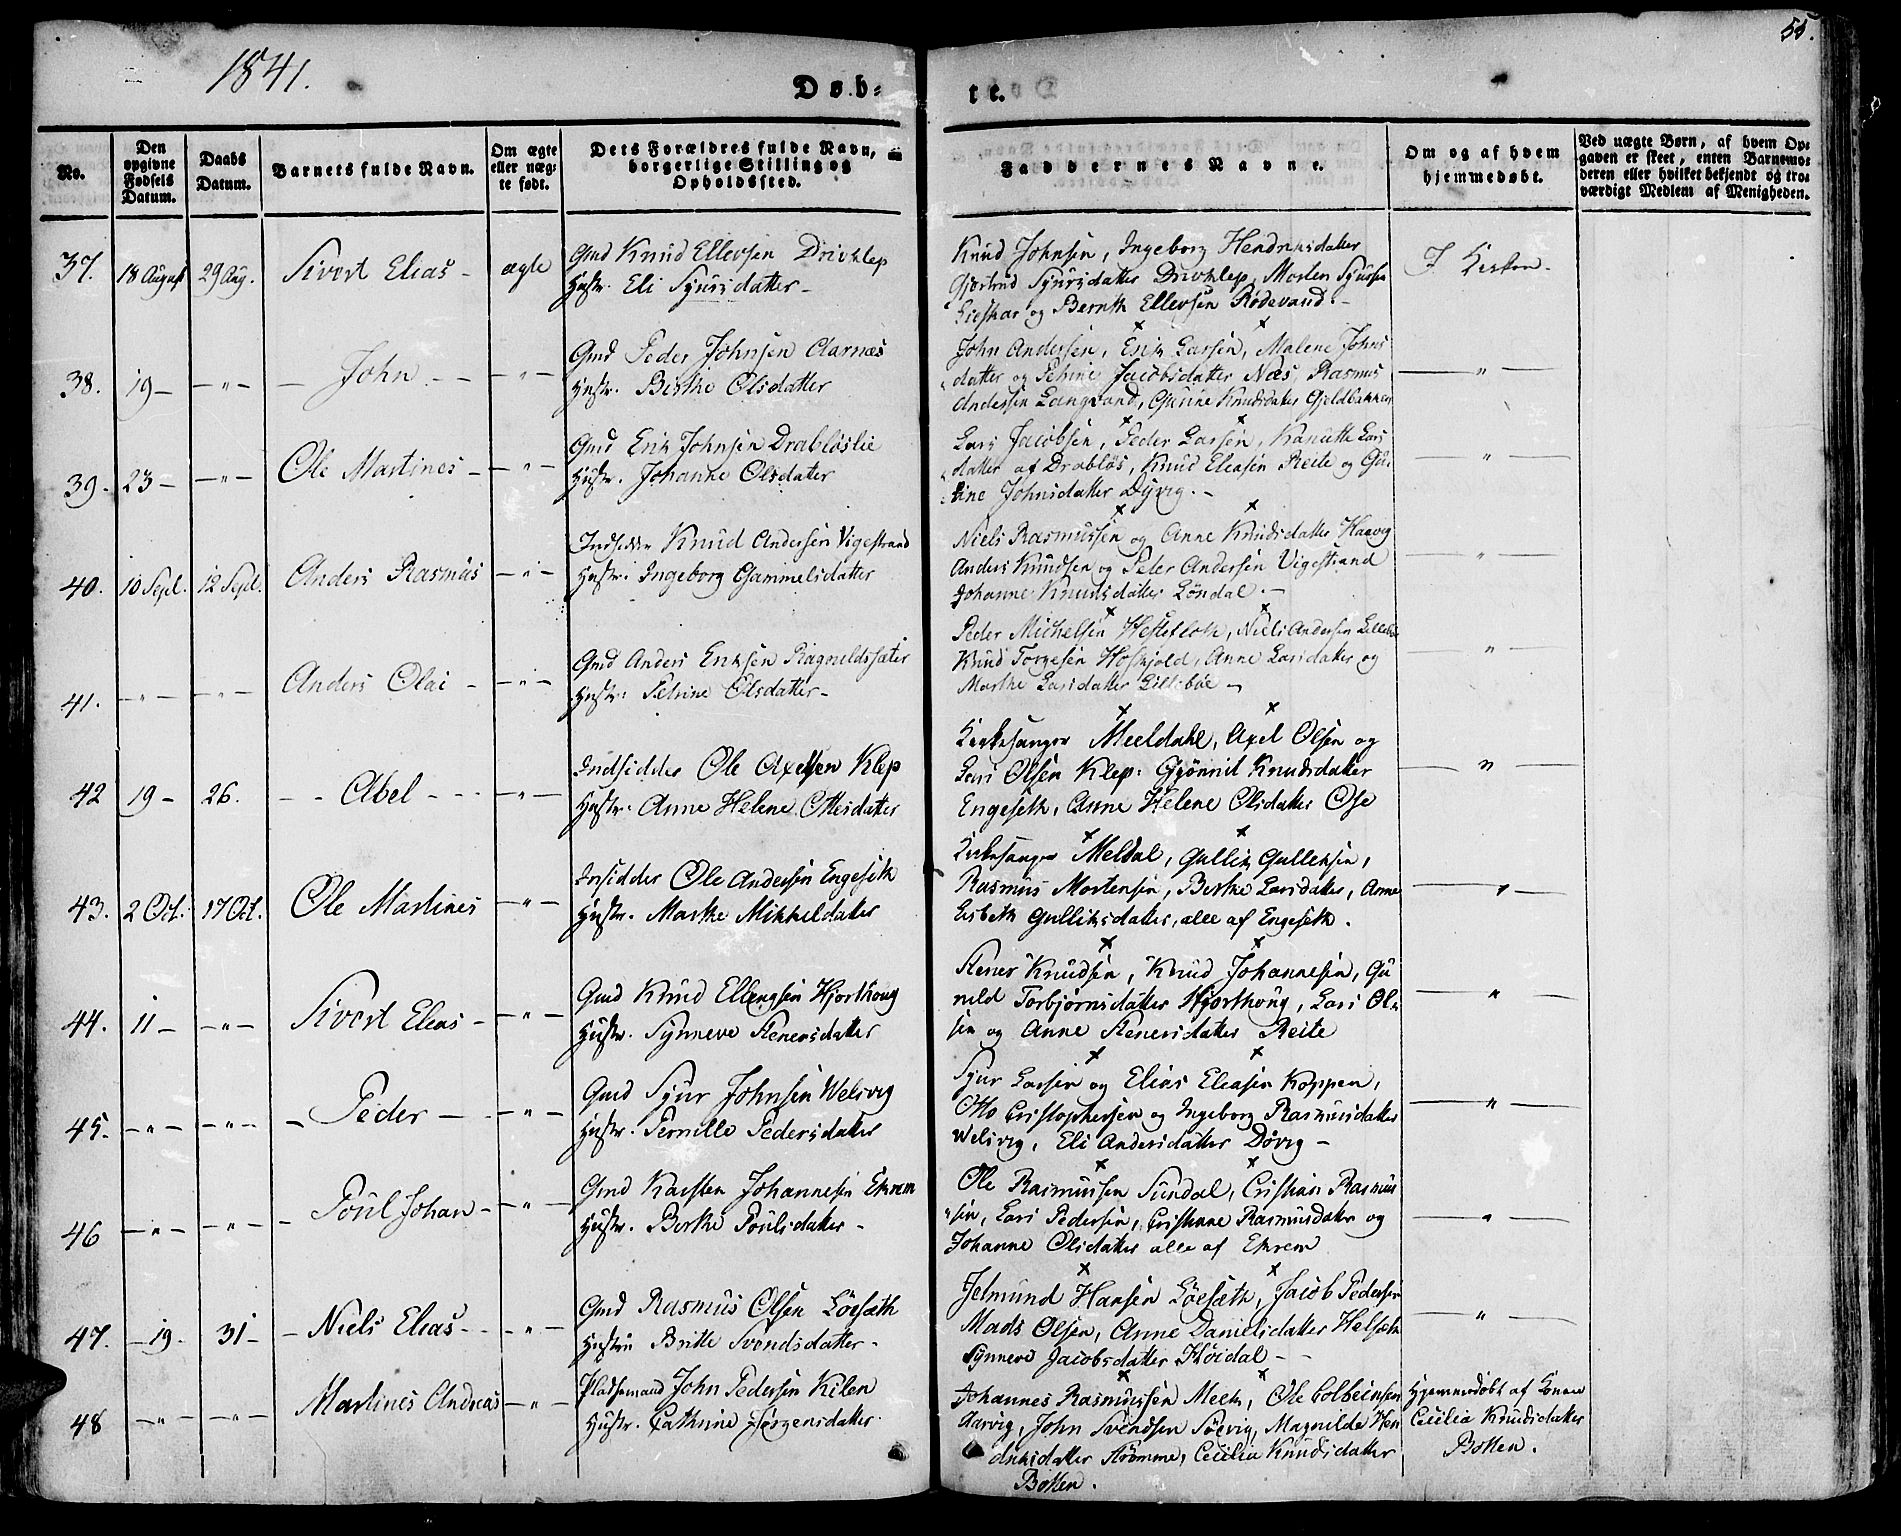 1841.
55.
Døb-
te.
No.
Den opgivne Fødsels Datum.
Daabs Datum.
Barnets fulde Navn.
Om ægte eller næg- te født.
Dets Forældres fulde Navn, borgerlige Stilling og Opholdssted.
Faddernes Navne.
Om og af hvem hjemmedøbt.
Ved uægte Børn, af hvem Op-
gaven er skeet, enten Barnemo-
deren eller hvilket bekjendt og tro-
værdigt Medlem af Menigheden.
37. 18 August 29 Aug. Sivert Elias - ægte
Gmd Knud Ellevsen Drivklep
Hustr. Eli Sjursdatter -
Knud Johnsen, Ingeborg Hendriksdatter
Gjertrud Sjursdatter Drivklep, Morten Sjursen
Lieskar og Bernth Ellevsen Rødevand. -
I Kirken.
38. 19 - - " - - John - - - " -
Gmd Peder Johnsen Aarnæs
Hustr. Birthe Olsdatter
John Andersen, Erik Larsen, Malene Johns
datter og Petrine Jacobsdatter Næs, Rasmus
Andersen Langvand, Gurine Knudsdatter Gjeldbakken
- " -
39. 23 - - " - Ole Martines - - " -
Gmd Erik Johnsen Drabløslie
Hustr. Johanne Olsdatter
Lars Jacobsen, Peder Larsen, Kanutte Lars
datter af Drabløs, Knud Eleasen Reite og Gu-
rine Johnsdatter Dyvig. -
- " -
40. 10 Sept. 12 Sept. Anders Rasmus - " -
Indsidder Knud Andersen Vigestrand
Hustr. Ingeborg Gammelsdatter
Niels Rasmussen og Anne Knudsdatter Haavig
Anders Knudsen og Peter Andersen Vigestrand
Johanne Knudsdatter Løndal. -
- " -
41. - " - - " - Anders Olai - - " -
Gmd Anders Eriksen Ragnildssæter
Hustr. Petrine Olsdatter -
Peder Michelsen Hesteflok, Niels Andersen Lillebøe
Knud Torgesen Hoskjold, Anne Larsdatter og
Marthe Larsdatter Lillebøe -
- " -
42 19 - 26. - - Abel - - - - " -
Indsidder Ole Axelsen Klep
Hustr. Anne Helene Ottersdatter
Kirkesanger Meeldahl, Axel Olsen og
Lars Olsen Klep. Gjønnil Knudsdatter
Engeseth, Anne Helene Olsdatter Ose
- " -
43. 2 Oct. 17 Oct. Ole Martines - " -
Insidder Ole Andersen Engeseth
Hustr. Marthe Mikkeldatter
Kirkesanger Meldal, Gullik Gulleksen,
Rasmus Mortensen, Berthe Larsdatter, Anne
Lisbeth Gulliksdatter, alle af Engeseth.
- " -
44. 11 - - " - Sivert Eleas - - " -
Gmd Knud Ellingsen Hjorthoug
Hustr. Synneve Stenersdatter
Stener Knudsen, Knud Johannesen, Gu
nild Torbjørnsdatter Hjorthoug, Lars Ol-
sen og Anne Stenersdatter Reite
- " -
45. - " - - " - - Peder - - " -
Gmd Sjur Johnsen Welsvig
Hustr. Pernille Pedersdatter
Sjur Larsen og Elias Eleasen Koppen,
Otto Cristophersen og Ingeborg Rasmusdatter
Welsvig, Eli Andersdatter Døvig -
- " -
46 - " - - " - - Poul Johan - - " -
Gmd Karsten Johannesen Ekrem
Hustr. Berthe Poulsdatter -
Ole Rasmussen Sundal, Cristian Rasmus
sen, Lars Pedersen, Cristianne Rasmusdatter og
Johanne Olsdatter alle af Ekrem
- " -
47. - 19. 31 - - Niels Eleas - - - " -
Gmd Rasmus Olsen Løesæth
Hustru Britte Svendsdatter -
Jelmund Hansen Løesæth, Jacob Pedersen
Mads Olsen, Anne Danielsdatter Helsæth
Synneve Jacobsdatter Høidal - -
- " -
48 - " - - " - Martines Andreas - " -
Pladsemand John Pedersen Kilen
Hustr. Cathrine Jørgensdatter.
Johannes Rasmussen Meek, Ole Colbeinsen
Aarvig, John Svendsen Søevig, Magnilde Hen
driksdatter Strømme, Cecilia Knudsdatter
Botten.
Hjemmedøbt af Konen
Cecilia Knudsdatter
Botten.